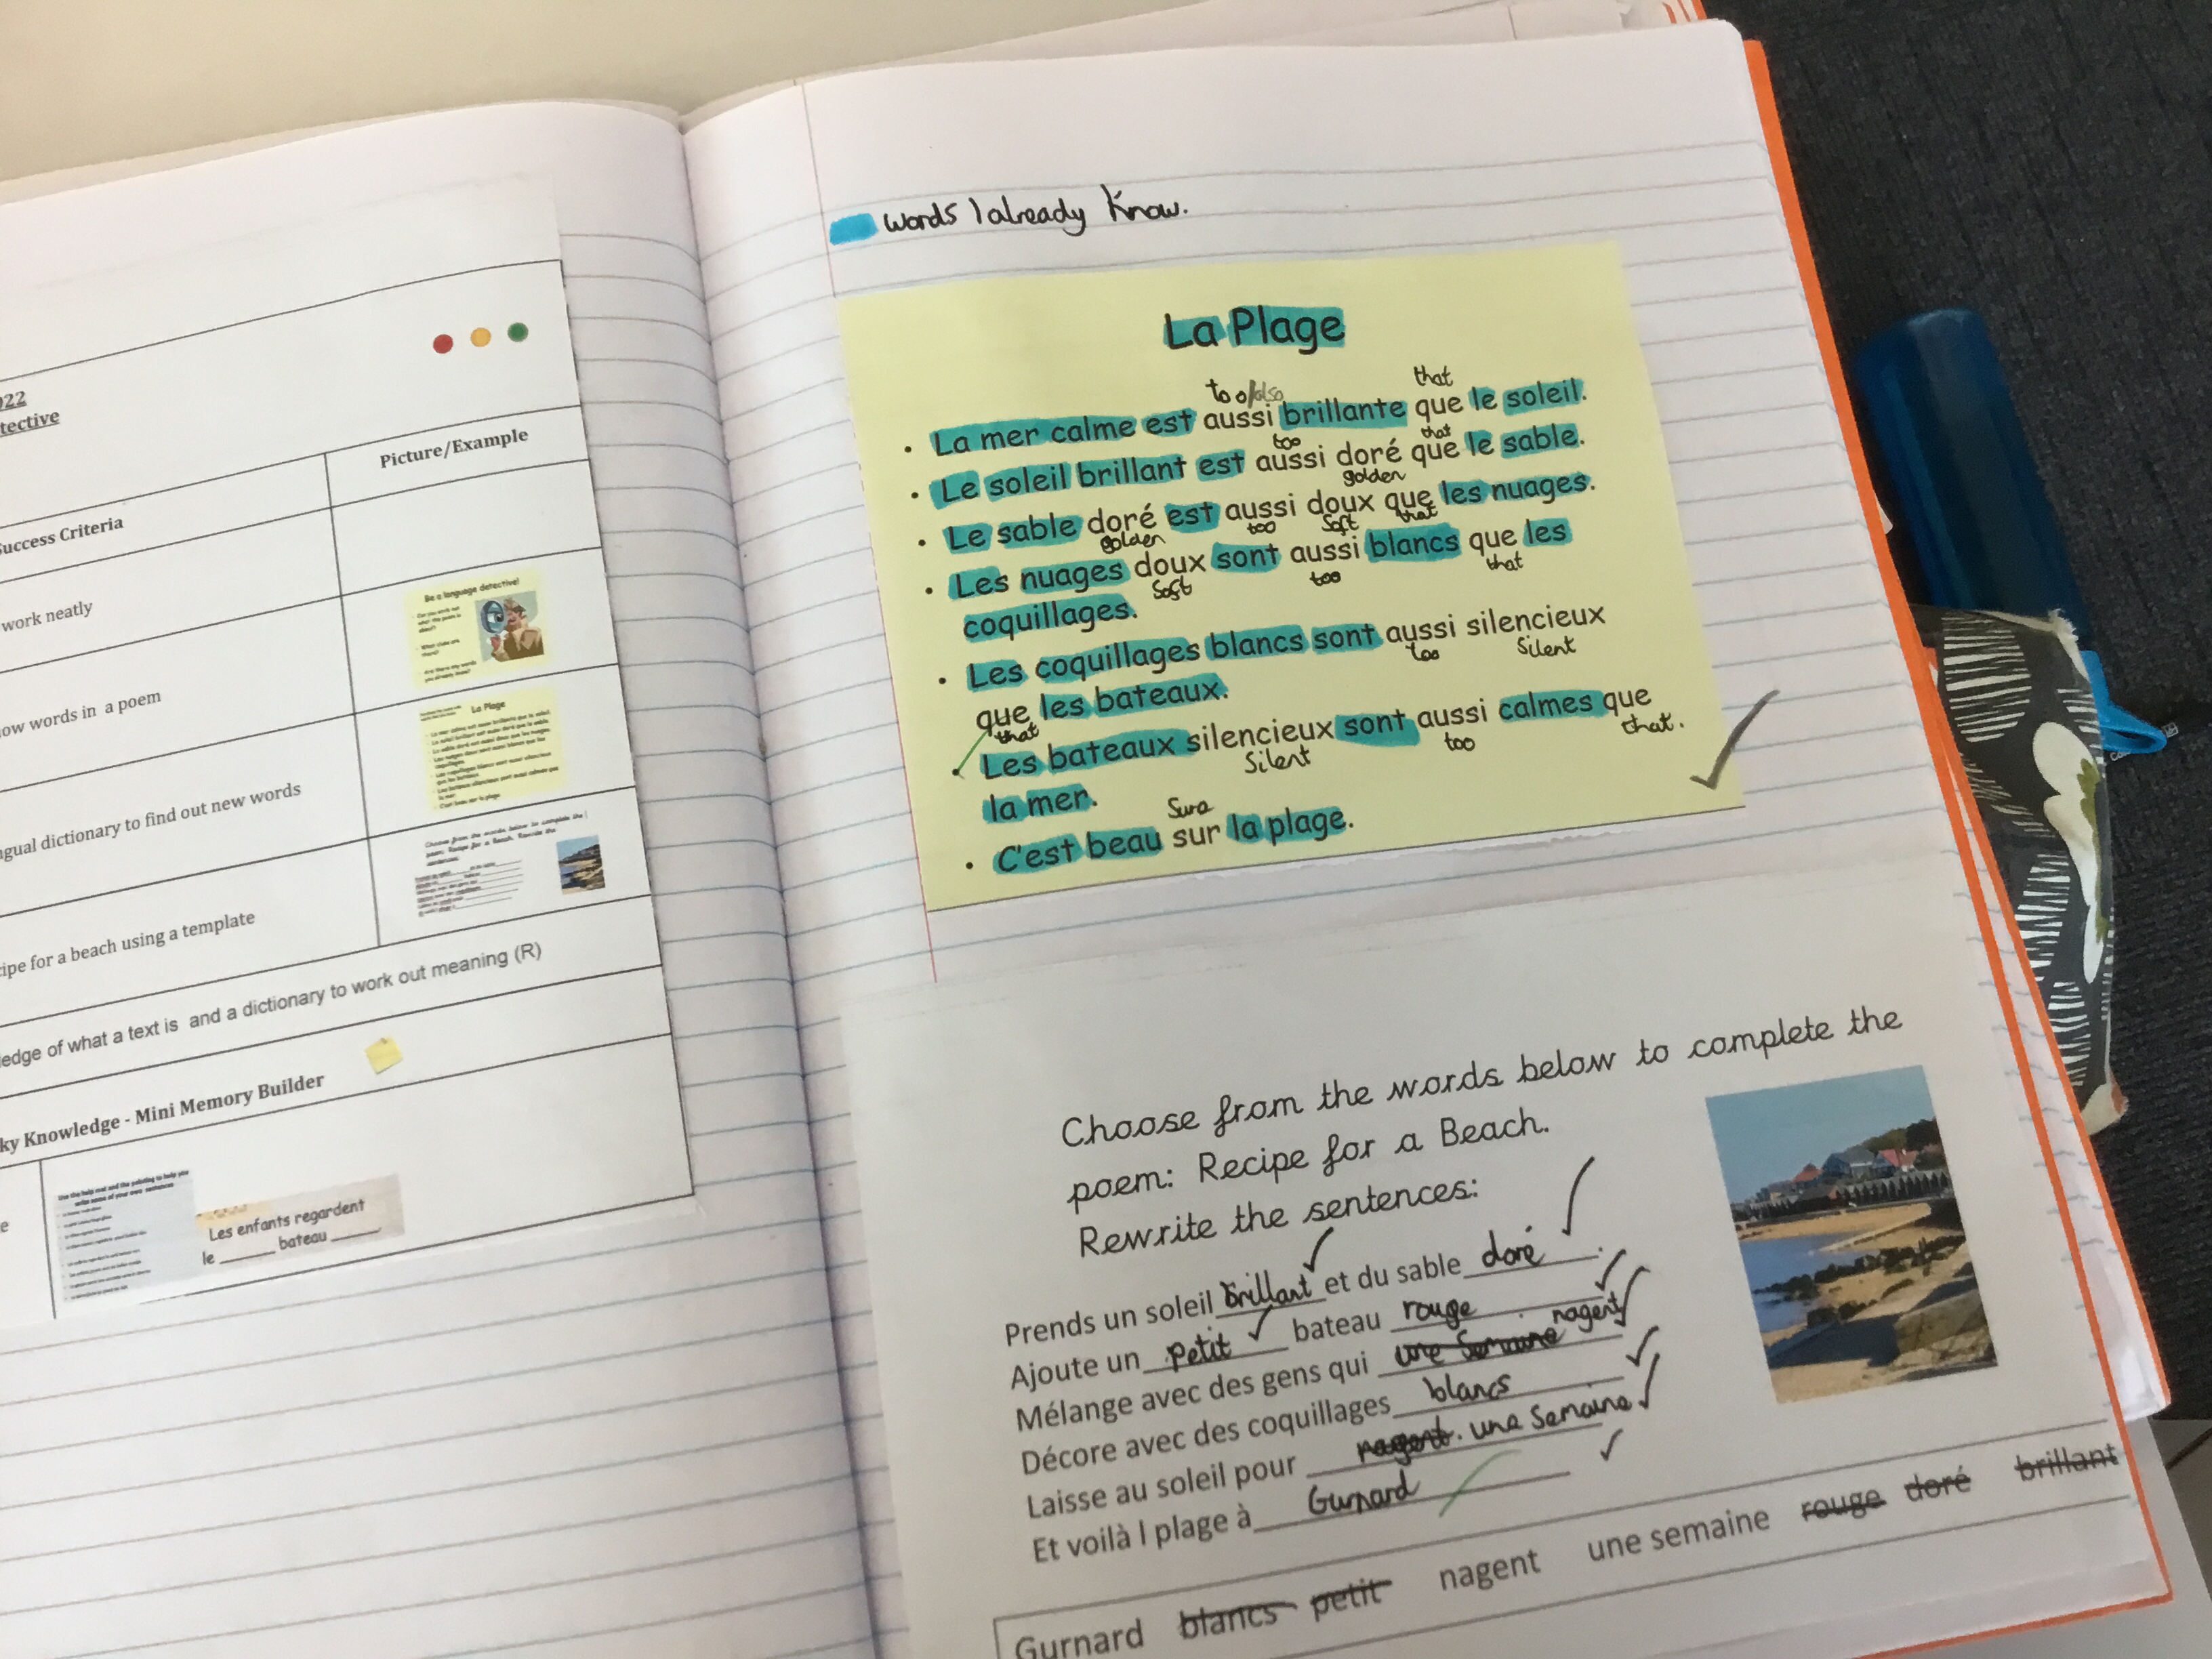 022
tective
Picture/Example
Success Criteria
work neatly
Be a language detective!
ow words in a poem
La Plage
ngual dictionary to find out new words
cipe for a beach using a template
ledge of what a text is and a dictionary to work out meaning (R)
ky Knowledge - Mini Memory Builder
Use the help mat and the painting to help you
write some of your own sentences
Les enfants regardent
le ______ bateau ______.
words I already know.
La Plage
too/also that
• La mer calme est aussi brillante que le soleil.
too that
• Le soleil brillant est aussi doré que le sable.
golden
• Le sable doré est aussi doux que les nuages.
golden too soft that
• Les nuages doux sont aussi blancs que les
soft too that
coquillages.
• Les coquillages blancs sont aussi silencieux
too Silent
que les bateaux.
that
• Les bateaux silencieux sont aussi calmes que
Silent too that.
la mer.
• C'est beau sur la plage.
Choose from the words below to complete the
poem: Recipe for a Beach.
Rewrite the sentences:
Prends un soleil brillant et du sable doré.
Ajoute un petit bateau rouge
Mélange avec des gens qui une Semaine nagent
Décore avec des coquillages blancs
Laisse au soleil pour nagent. une Semaine
Et voilà l plage à Gurnard
Gurnard blancs petit nagent une semaine rouge doré brillant